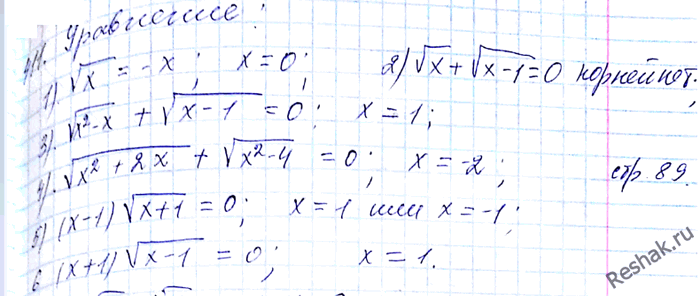 411. Уравнение:
1). √x = -x; x = 0; 2) √x + √(x-1) = 0 корней нет.,
3). √(x²-x) + √(x-1) = 0; x = 1;
4). √(x² + 2x) + √(x²-4) = 0; x = -2; стр. 89.
5) (x-1)√(x+1) = 0; x = 1 или x = -1;
6 (x+1)√(x-1) = 0; x = 1.
Reshak.ru